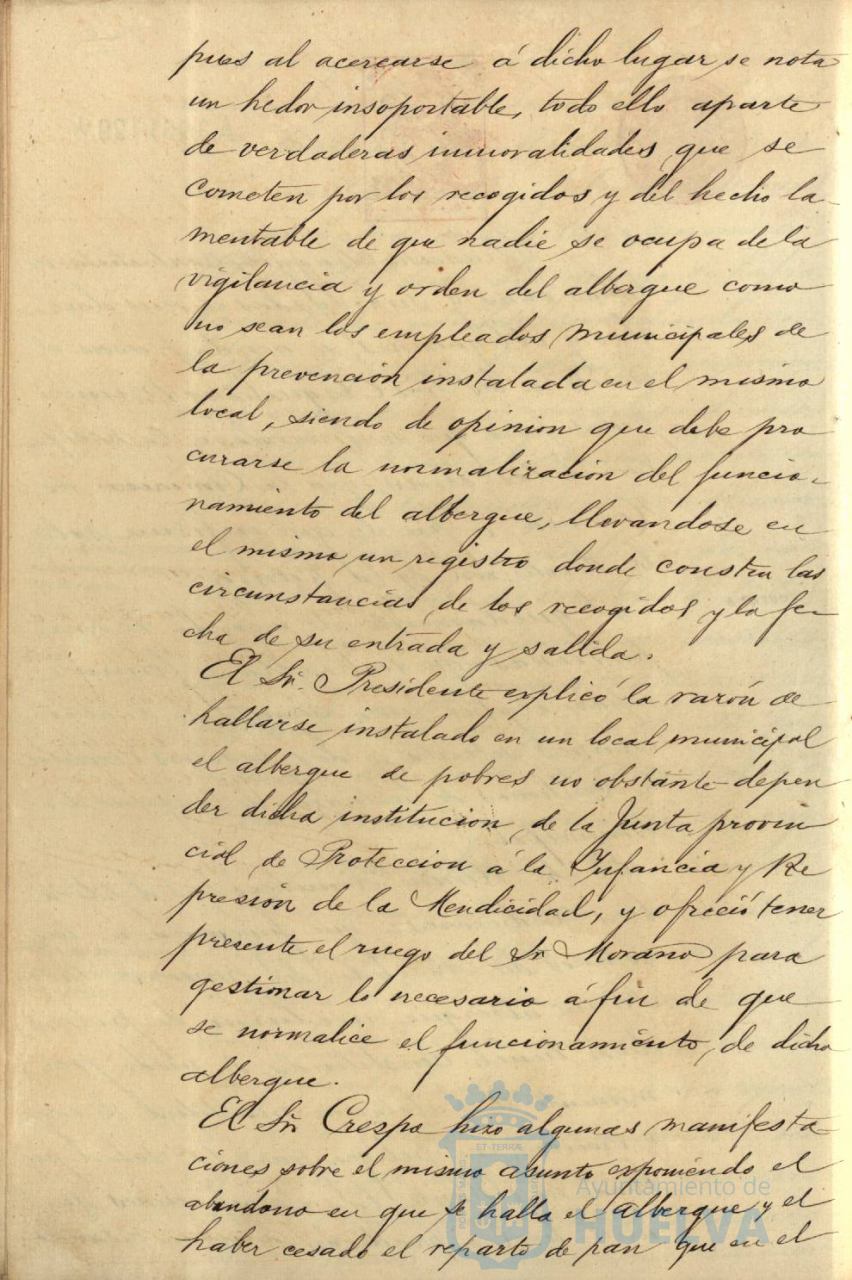 pues al acercarse á dicho lugar se nota
un hedor insoportable, todo ello aparte
de verdaderas inmoralidades que se
cometen por los recogidos y del hecho la-
mentable de que nadie se ocupa de la
vigilancia y orden del albergue como
no sean los empleados municipales de
la prevención instalada en el mismo
local, siendo de opinion que debe pro
curarse la normalización del funcio-
namiento del albergue, llevandose en
el mismo un registro donde consten las
circunstancias de los recogidos y la fe-
cha de su entrada y salida.
El Sr. Presidente explicó la razón de
hallarse instalado en un local municipal
el albergue de pobres no obstante depen
der dicha institucion de la Junta provin
cial de Proteccion á la Infancia y Re
presión de la Mendicidad, y ofreció tener
presente el ruego del Sr Morano para
gestionar lo necesario á fin de que
se normalice el funcionamiento de dicho
albergue.
El Sr Crespo hizo algunas manifesta
ciones sobre el mismo asunto exponiendo el
abandono en que se halla el albergue y el
haber cesado el reparto de pan que en el
Ayuntamiento de
HUELVA